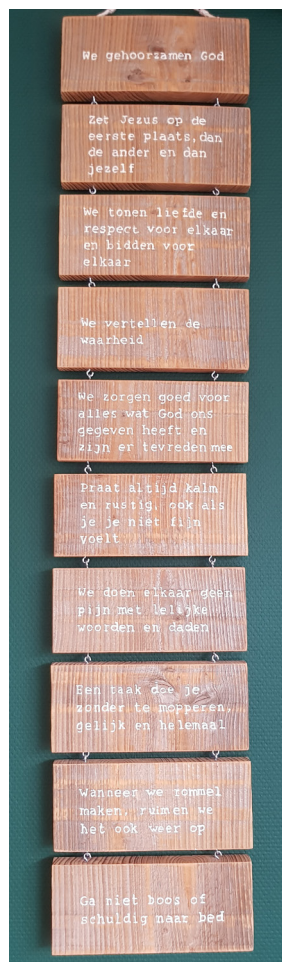 We gehoorzamen God
Zet Jezus op de
eerste plaats, dan
de ander en dan
jezelf
We tonen liefde en
respect voor elkaar
en bidden voor
elkaar
We vertellen de
waarheid
We zorgen goed voor
alles wat God ons
gegeven heeft en
zijn er tevreden mee
Praat altijd kalm
en rustig, ook als
je je niet fijn
voelt.
We doen elkaar geen
pijn met lelijke
woorden en daden
Een taak doe je
zonder te mopperen,
gelijk en helemaal
Wanneer we rommel
maken, ruimen we
het ook weer op
Ga niet boos of
schuldig naar bed